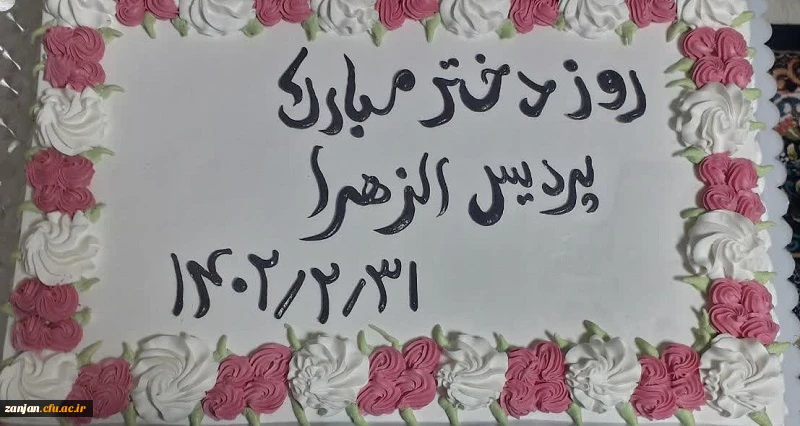 روز دختر مبارک
پردیس الزهرا
۱۴۰۲/۲/۳۱
zanjan.cfu.ac.ir